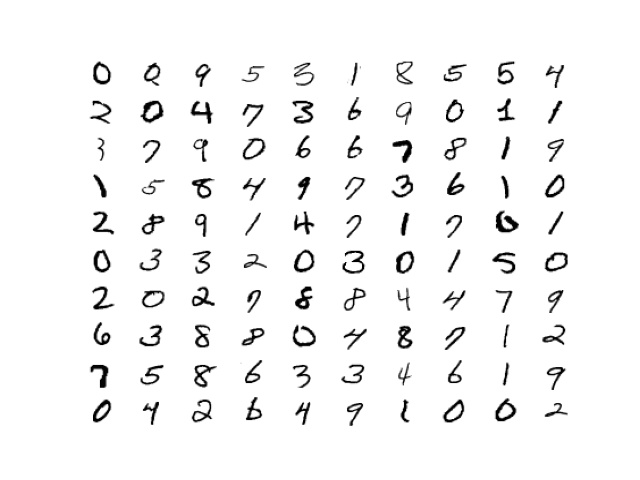 0 0 9 5 3 1 8 5 5 4
2 0 4 7 3 6 9 0 1 1
3 7 9 0 6 6 7 8 1 9
1 5 8 4 9 7 3 6 1 0
2 8 9 1 4 7 1 7 6 1
0 3 3 2 0 3 0 1 5 0
2 0 2 7 8 8 4 4 7 9
6 3 8 8 0 4 8 7 1 2
7 5 8 6 3 3 4 6 1 9
0 4 2 6 4 9 1 0 0 2